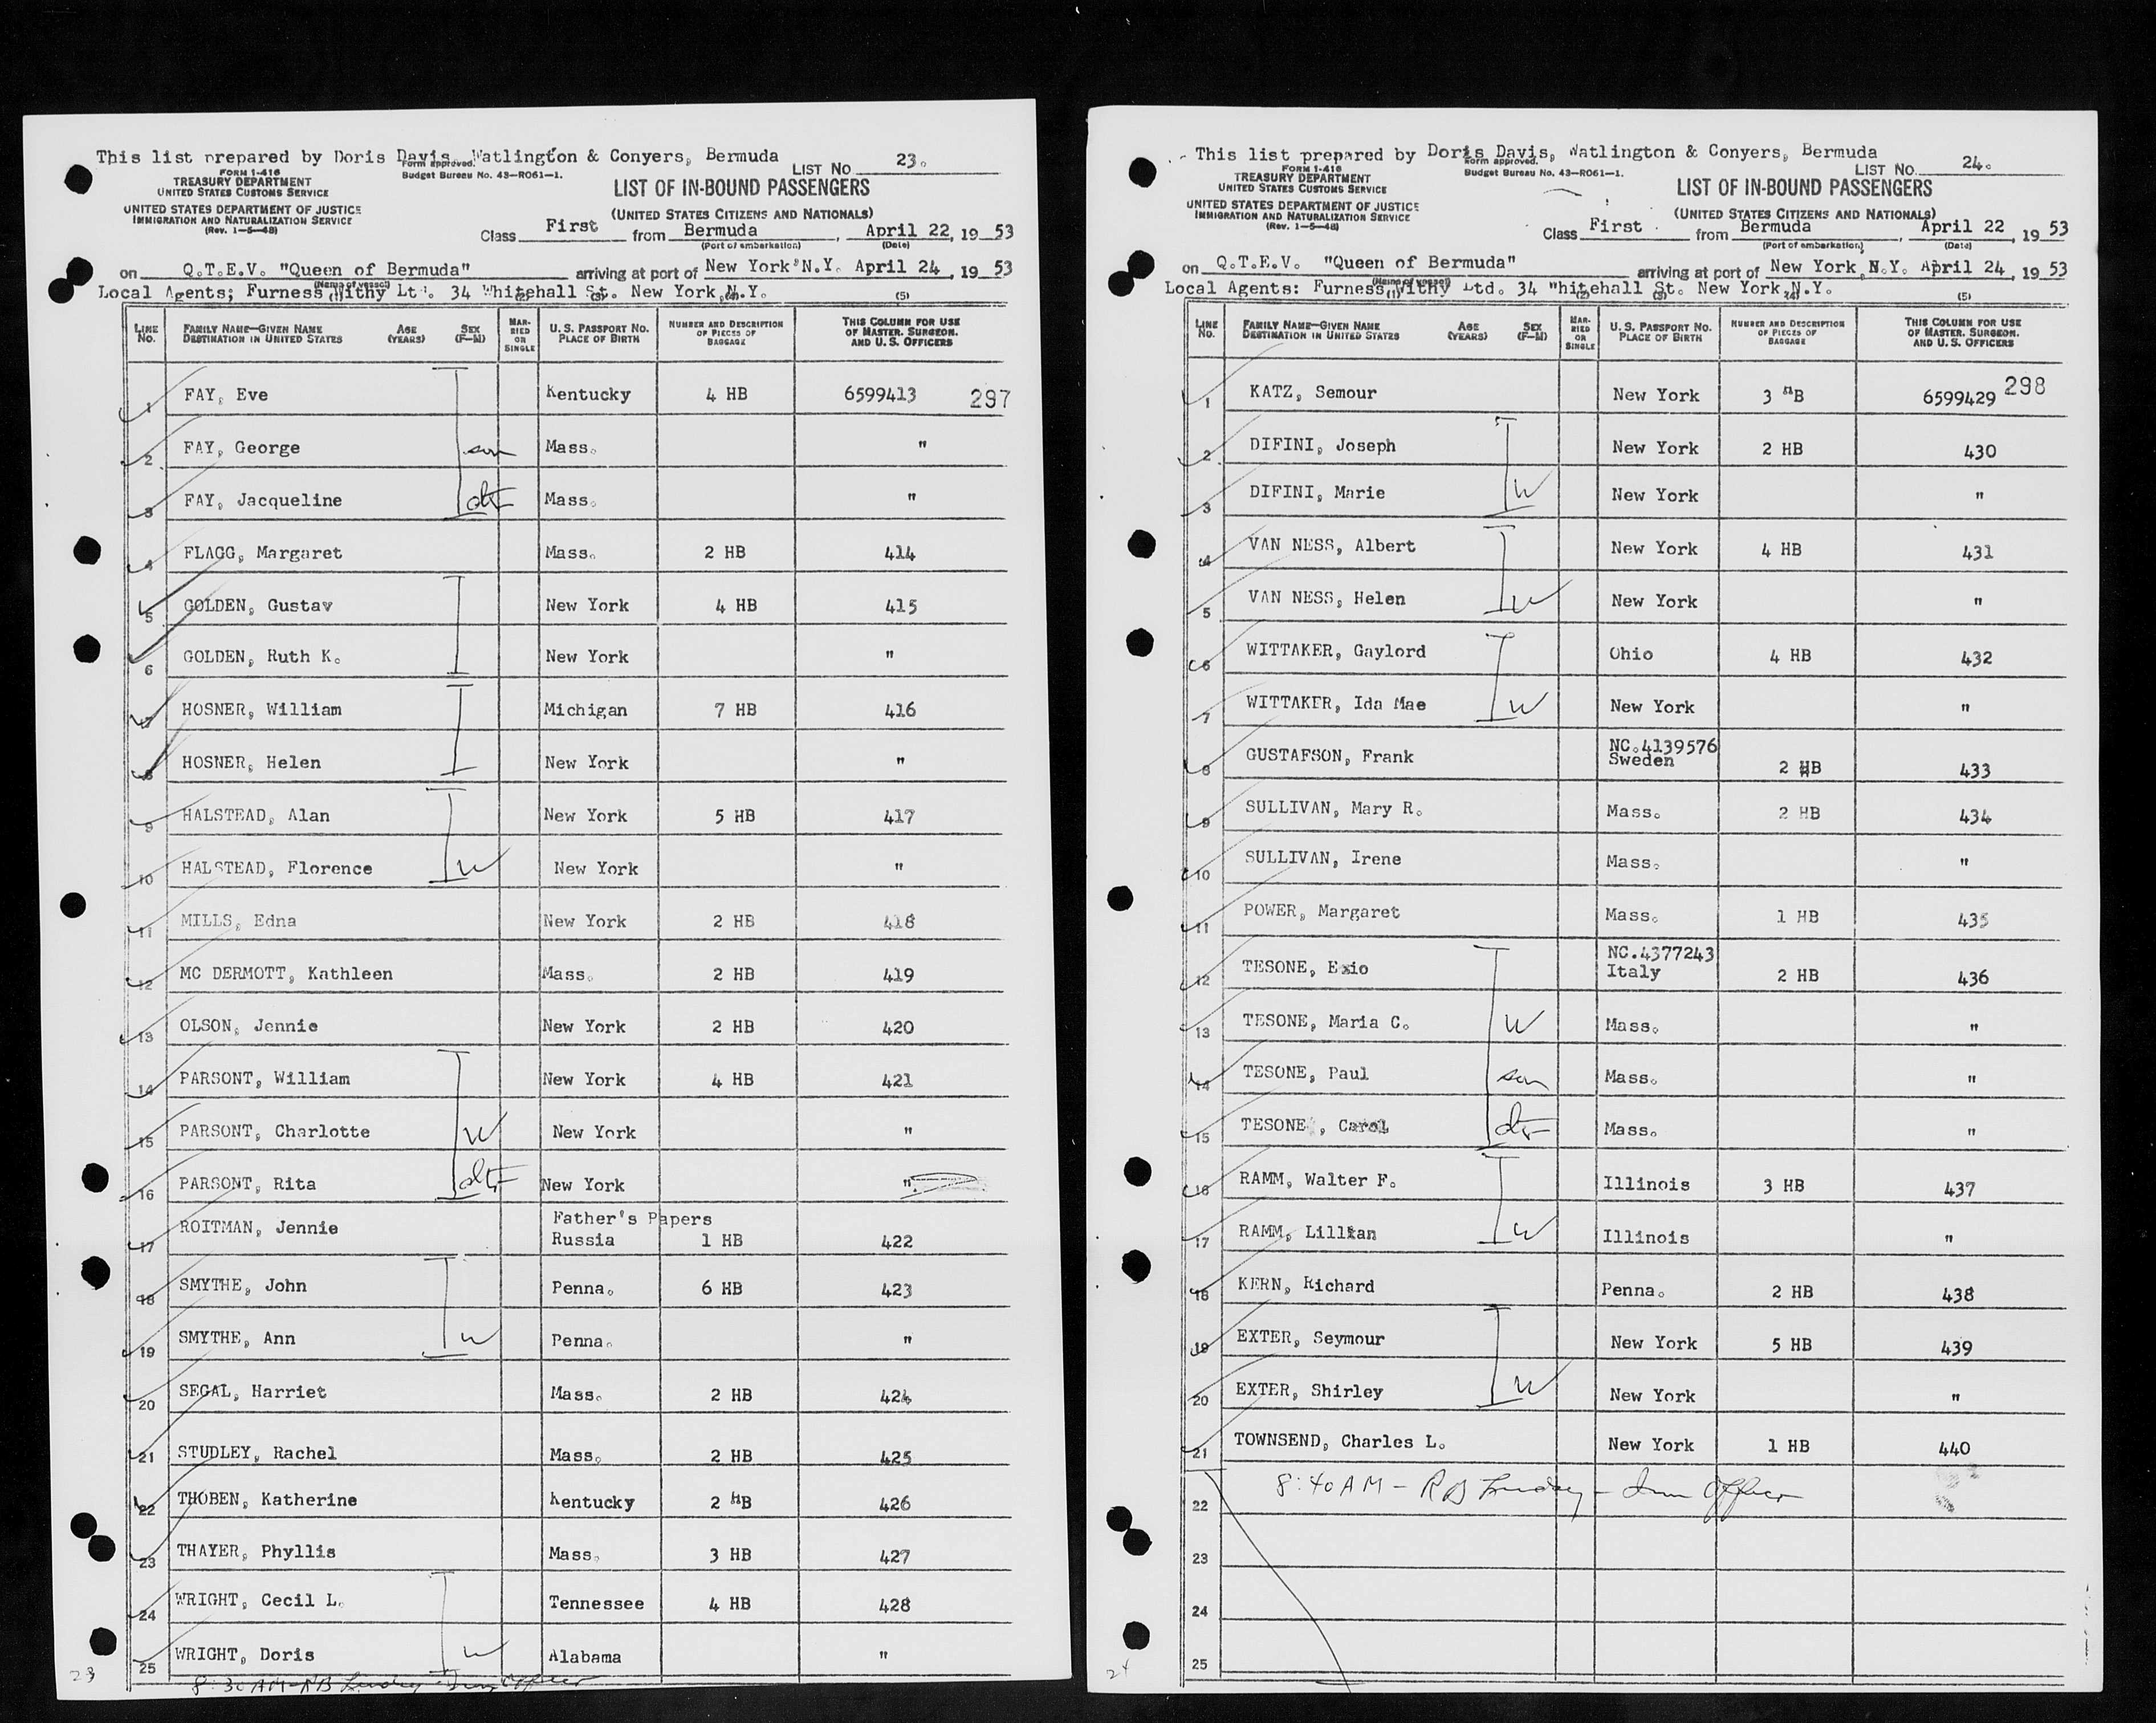 This list prepared by Doris Davis, Watlington & Conyers, Bermuda
Form approved.
Budget Bureau No. 43-R061-1.
LIST No. 23.
FORM I-416
TREASURY DEPARTMENT
UNITED STATES CUSTOMS SERVICE
UNITED STATES DEPARTMENT OF JUSTICE
IMMIGRATION AND NATURALIZATION SERVICE
(Rev. 1-5-48)
LIST OF IN-BOUND PASSENGERS
(UNITED STATES CITIZENS AND NATIONALS)
Class First from Bermuda, April 22, 19 53
(Port of embarkation) (Date)
on Q.T.E.V. "Queen of Bermuda" arriving at port of New York N.Y. April 24, 19 53
(Name of vessel)
Local Agents; Furness Withy Ltd. 34 Whitehall St. New York, N.Y.
(1) (2) (3) (4) (5)
LINE No. FAMILY NAME—GIVEN NAME DESTINATION IN UNITED STATES AGE (YEARS) SEX (F-M) MARRIED OR SINGLE U. S. PASSPORT NO. PLACE OF BIRTH NUMBER AND DESCRIPTION OF PIECES OF BAGGAGE THIS COLUMN FOR USE OF MASTER, SURGEON, AND U. S. OFFICERS
1 FAY, Eve Kentucky 4 HB 6599413 297
2 FAY, George son Mass. "
3 FAY, Jacqueline dtr Mass. "
4 FLAGG, Margaret Mass. 2 HB 414
5 GOLDEN, Gustav New York 4 HB 415
6 GOLDEN, Ruth K. New York "
7 HOSNER, William Michigan 7 HB 416
8 HOSNER, Helen New York "
9 HALSTEAD, Alan New York 5 HB 417
10 HALSTEAD, Florence W New York "
11 MILLS, Edna New York 2 HB 418
12 MC DERMOTT, Kathleen Mass. 2 HB 419
13 OLSON, Jennie New York 2 HB 420
14 PARSONT, William New York 4 HB 421
15 PARSONT, Charlotte W New York "
16 PARSONT, Rita dtr New York "
17 ROITMAN, Jennie Father's Papers Russia 1 HB 422
18 SMYTHE, John Penna. 6 HB 423
19 SMYTHE, Ann W Penna. "
20 SEGAL, Harriet Mass. 2 HB 424
21 STUDLEY, Rachel Mass. 2 HB 425
22 THOBEN, Katherine Kentucky 2 HB 426
23 THAYER, Phyllis Mass. 3 HB 427
24 WRIGHT, Cecil L. Tennessee 4 HB 428
25 WRIGHT, Doris W Alabama "
23 8:30 AM - RB Officer
This list prepared by Doris Davis, Watlington & Conyers, Bermuda
Form approved.
Budget Bureau No. 43-R061-1.
LIST No. 24.
FORM I-416
TREASURY DEPARTMENT
UNITED STATES CUSTOMS SERVICE
UNITED STATES DEPARTMENT OF JUSTICE
IMMIGRATION AND NATURALIZATION SERVICE
(Rev. 1-5-48)
LIST OF IN-BOUND PASSENGERS
(UNITED STATES CITIZENS AND NATIONALS)
Class First from Bermuda, April 22, 19 53
(Port of embarkation) (Date)
on Q.T.E.V. "Queen of Bermuda" arriving at port of New York, N.Y. April 24, 19 53
(Name of vessel)
Local Agents: Furness, Withy Ltd. 34 "hitehall St. New York, N.Y.
(1) (2) (3) (4) (5)
LINE No. FAMILY NAME—GIVEN NAME DESTINATION IN UNITED STATES AGE (YEARS) SEX (F-M) MARRIED OR SINGLE U. S. PASSPORT NO. PLACE OF BIRTH NUMBER AND DESCRIPTION OF PIECES OF BAGGAGE THIS COLUMN FOR USE OF MASTER, SURGEON, AND U. S. OFFICERS
1 KATZ, Semour New York 3 HB 6599429 298
2 DIFINI, Joseph New York 2 HB 430
3 DIFINI, Marie W New York "
4 VAN NESS, Albert New York 4 HB 431
5 VAN NESS, Helen W New York "
6 WITTAKER, Gaylord Ohio 4 HB 432
7 WITTAKER, Ida Mae W New York "
8 GUSTAFSON, Frank NC.4139576 Sweden 2 HB 433
9 SULLIVAN, Mary R. Mass. 2 HB 434
10 SULLIVAN, Irene Mass. "
11 POWER, Margaret Mass. 1 HB 435
12 TESONE, Ezio NC.4377243 Italy 2 HB 436
13 TESONE, Maria C. W Mass. "
14 TESONE, Paul son Mass. "
15 TESONE, Carol dtr Mass. "
16 RAMM, Walter F. Illinois 3 HB 437
17 RAMM, Lillian W Illinois "
18 KERN, Richard Penna. 2 HB 438
19 EXTER, Seymour New York 5 HB 439
20 EXTER, Shirley W New York "
21 TOWNSEND, Charles L. New York 1 HB 440
22 8:40 AM - RB - Imm Officer
23
24
25
24